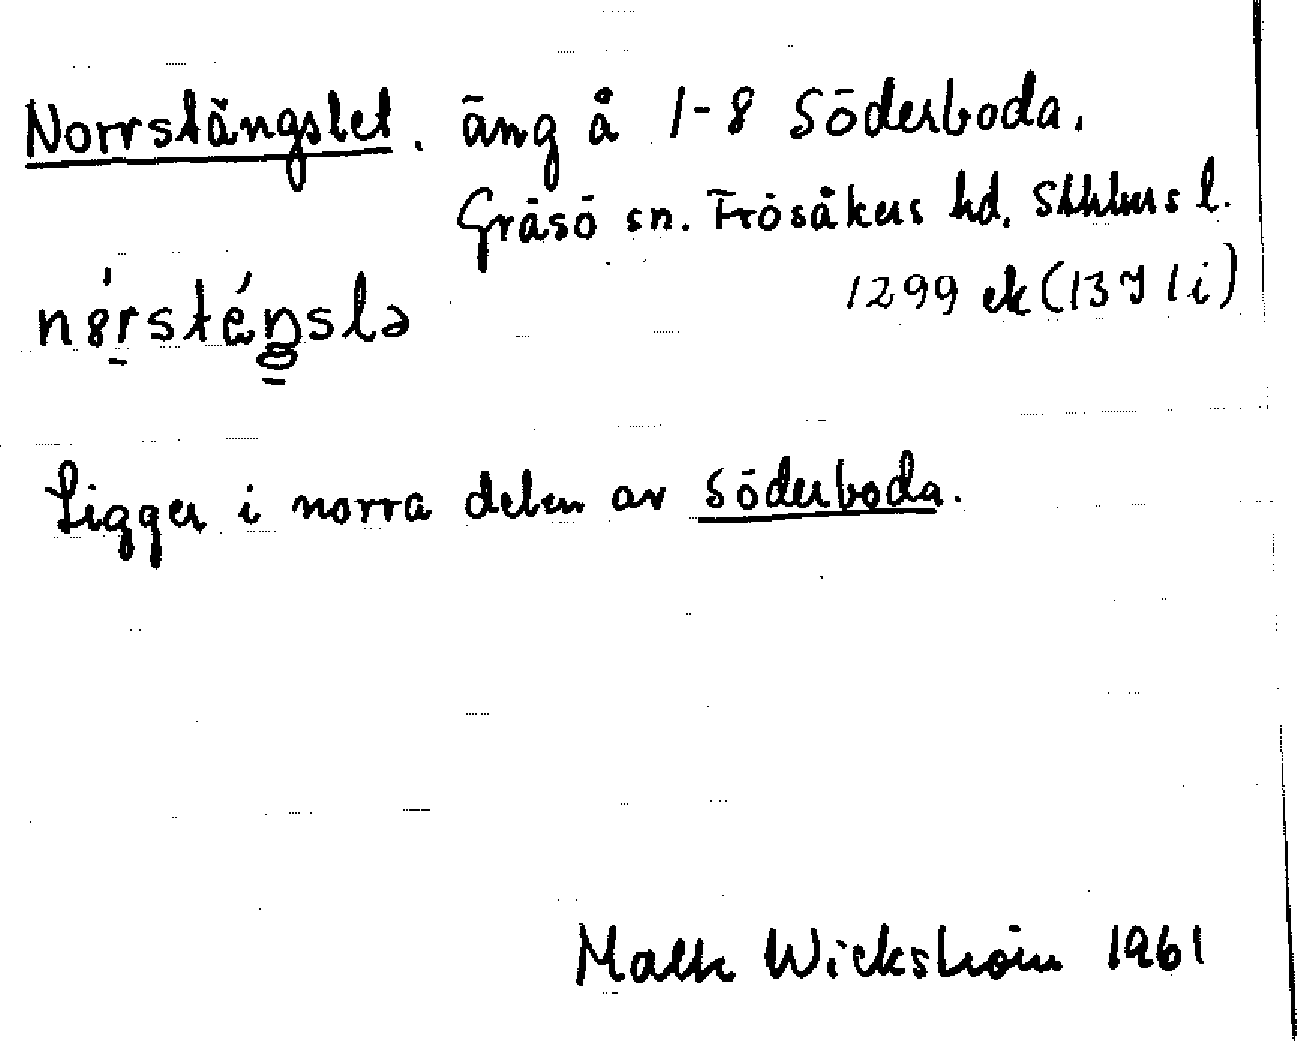 Norrstängslet. äng å 1-8 Söderboda.
Gräsö sn. Frösåkers hd. Sthlms l.
1299 ek (13 I 1 i)
nørsténslə
Ligger i norra delen av Söderboda.
Wickström 1961